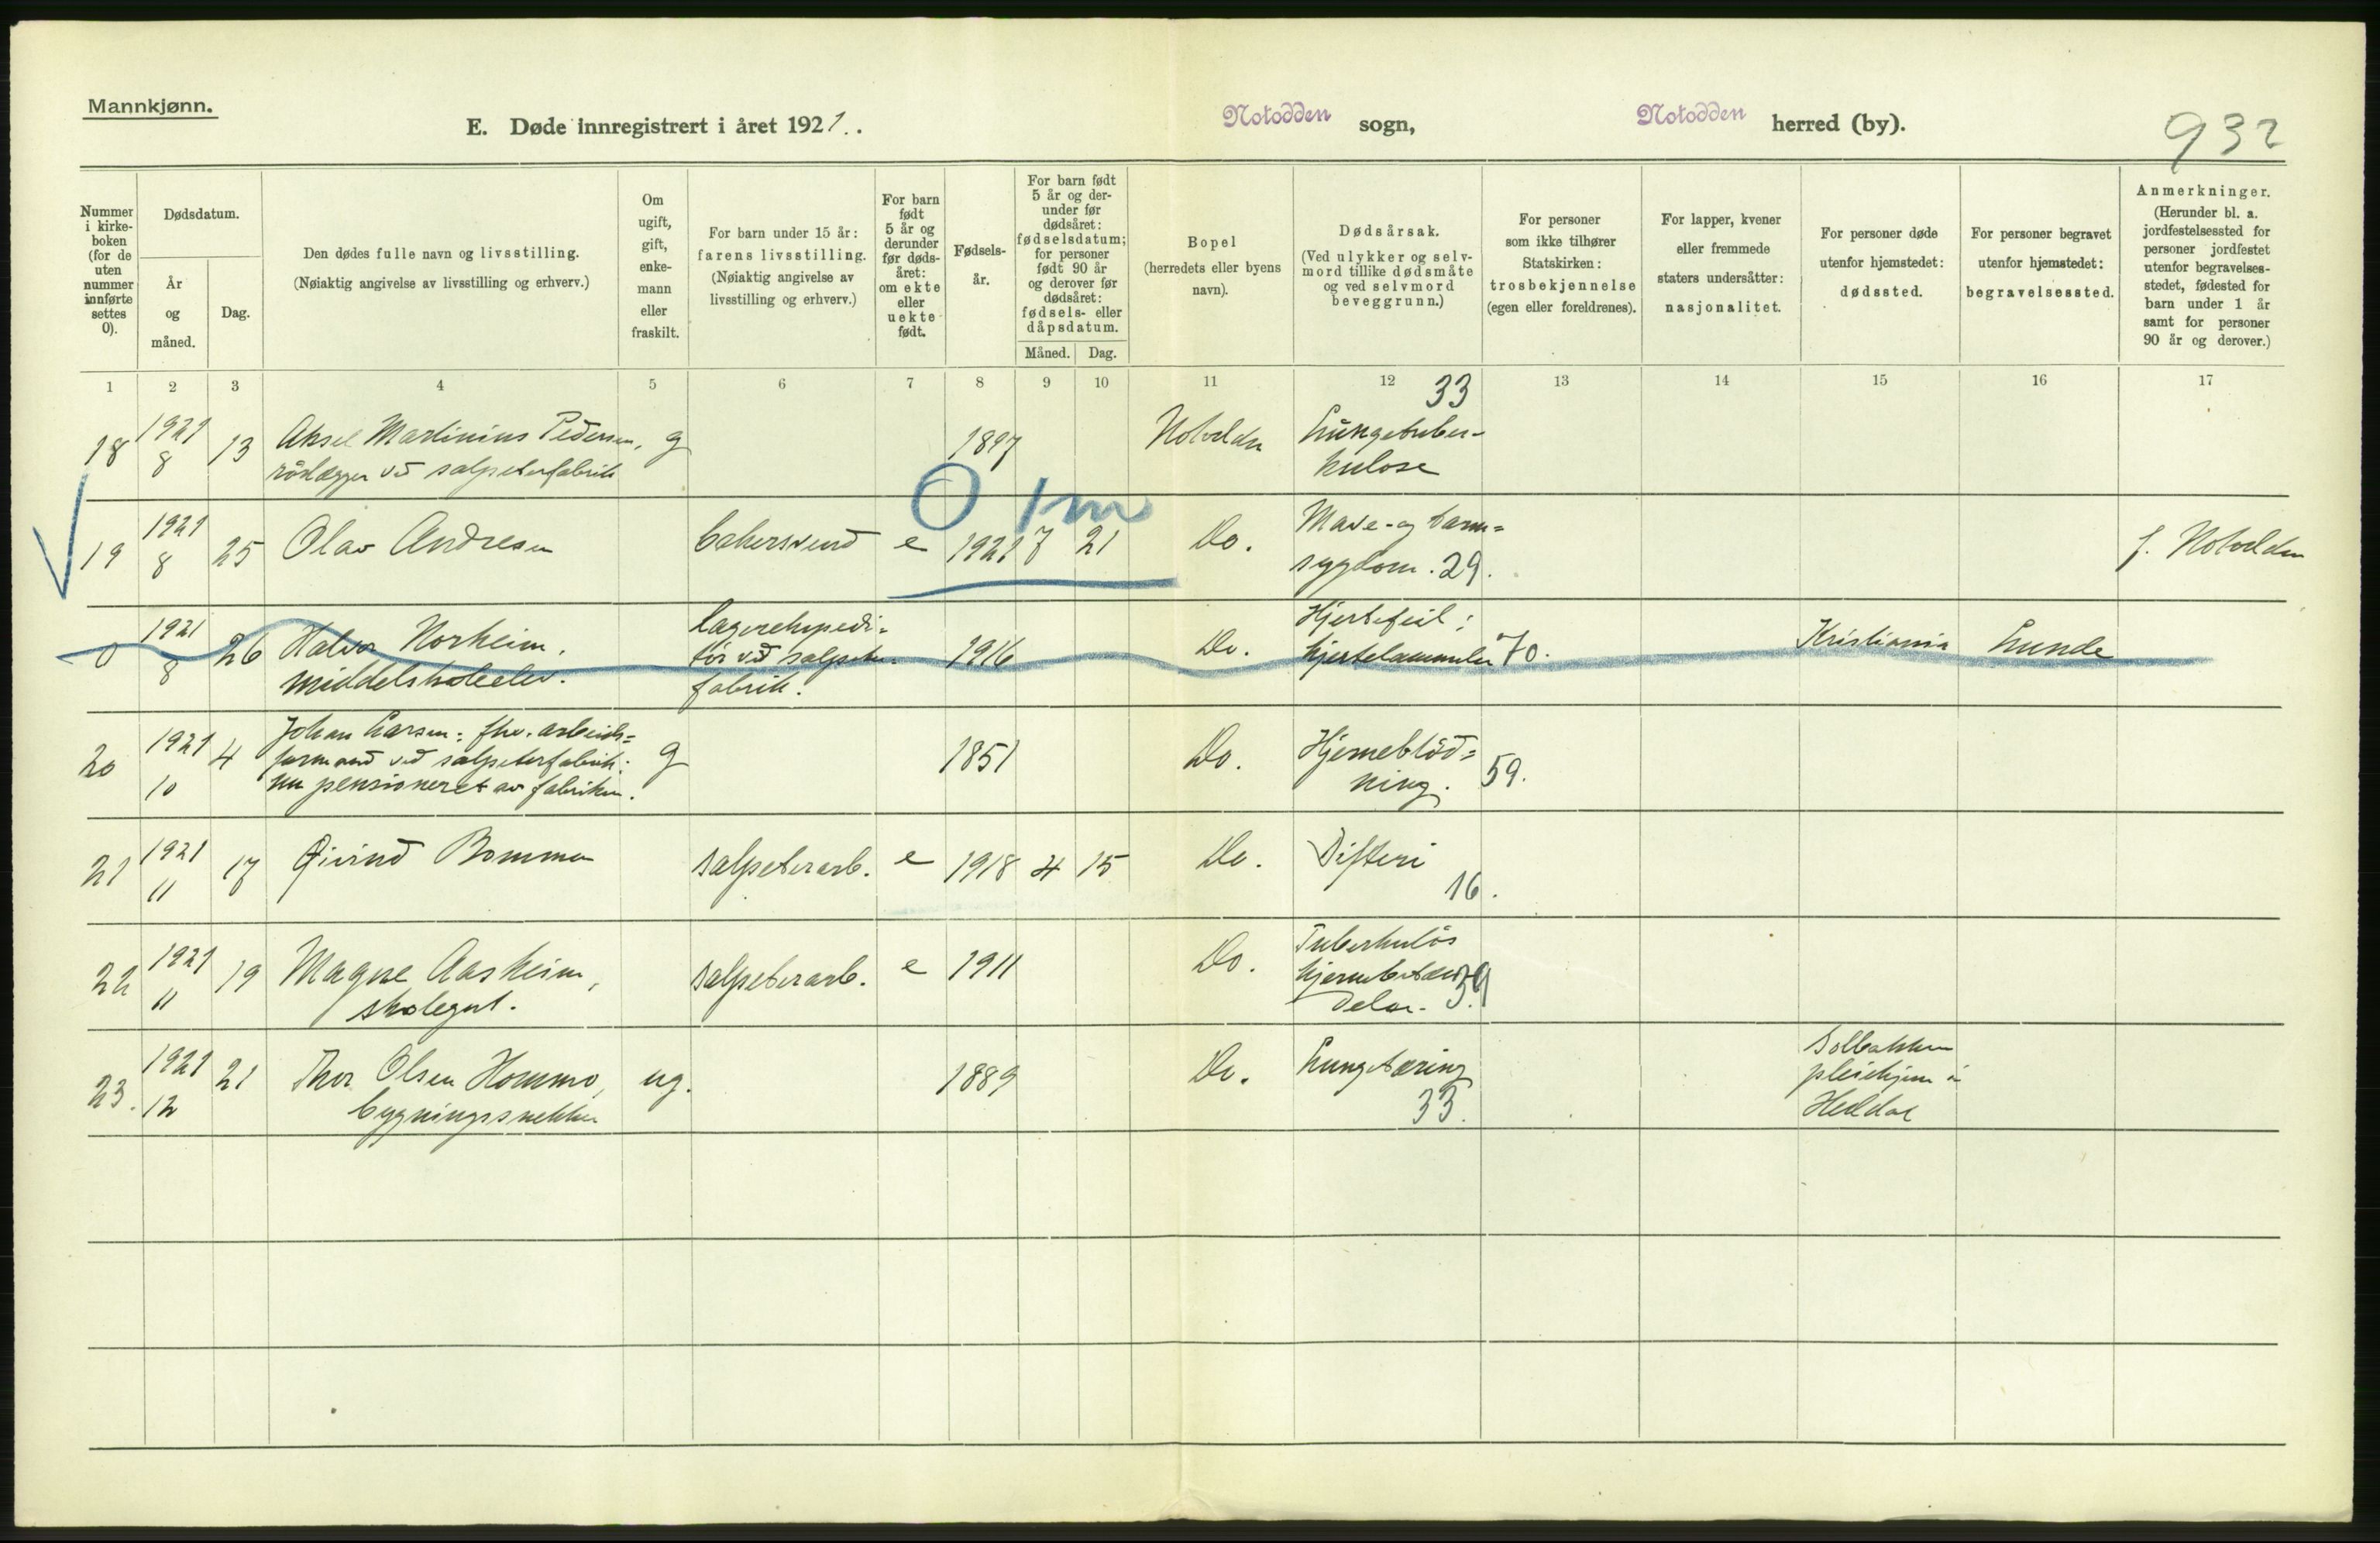 Mannkjønn.
E. Døde innregistrert i året 1921.
Notodden sogn, Notodden herred (by).
932
Nummer i kirke-boken (for de uten nummer innførte settes 0).
Dødsdatum.
År og måned.
Dag.
Den dødes fulle navn og livsstilling.
(Nøiaktig angivelse av livsstilling og erhverv.)
Om ugift, gift, enke-mann eller fraskilt.
For barn under 15 år: farens livsstilling.
(Nøiaktig angivelse av livsstilling og erhverv.)
For barn født 5 år og derunder før døds-året: om ekte eller uekte født.
Fødsels-år.
For barn født 5 år og der-under før dødsåret: fødselsdatum; for personer født 90 år og derover før dødsåret: fødsels- eller dåpsdatum.
Måned. Dag.
Bopel
(herredets eller byens navn).
Dødsårsak.
(Ved ulykker og selv-mord tillike dødsmåte og ved selvmord beveggrunn.)
For personer som ikke tilhører Statskirken: trosbekjennelse (egen eller foreldrenes).
For lapper, kvener eller fremmede staters undersåtter: nasjonalitet.
For personer døde utenfor hjemstedet: dødssted.
For personer begravet utenfor hjemstedet: begravelsessted.
Anmerkninger.
(Herunder bl. a. jordfestelsessted for personer jordfestet utenfor begravelses-stedet, fødested for barn under 1 år samt for personer 90 år og derover.)
1 2 3 4 5 6 7 8 9 10 11 12 13 14 15 16 17
33
18 1921 8 13 Aksel Martinius Pedersen, g 1897 Notodden Lungetuber-
rørlægger vd salpeterfabrik kulose
0 1m
19 1921 8 25 Olav Andresen bakersvend e 1921 7 21 Do. Mave- og tarm=
sygdom. 29. f. Notodden
0 1921 8 26 Halvor Norheim, lagerekspedi= 1916 Do. Hjertefeil; Kristiania Lunde
middelskoleelev. tør vd salpeter- hjertelammelse 70.
fabrik.
20 1921 10 4 Johan Larsen: fhv. arbeids= g 1851 Do. Hjerneblød=
formand ved salpeterfabrik; ning. 59.
nu pensioneret av fabriken.
21 1921 11 17 Øivind Bommen salpeterarb. e 1918 4 15 Do. Difteri
16.
22 1921 11 19 Magne Aasheim, salpeterarb. e 1911 Do. Tuberkuløs
skolegut. 39.
23. 1921 12 21 Thor Olsen Hommo, ug. 1889 Do. Lungetæring Solbakken
bygningssnekker 33. pleiehjem i
Heddal